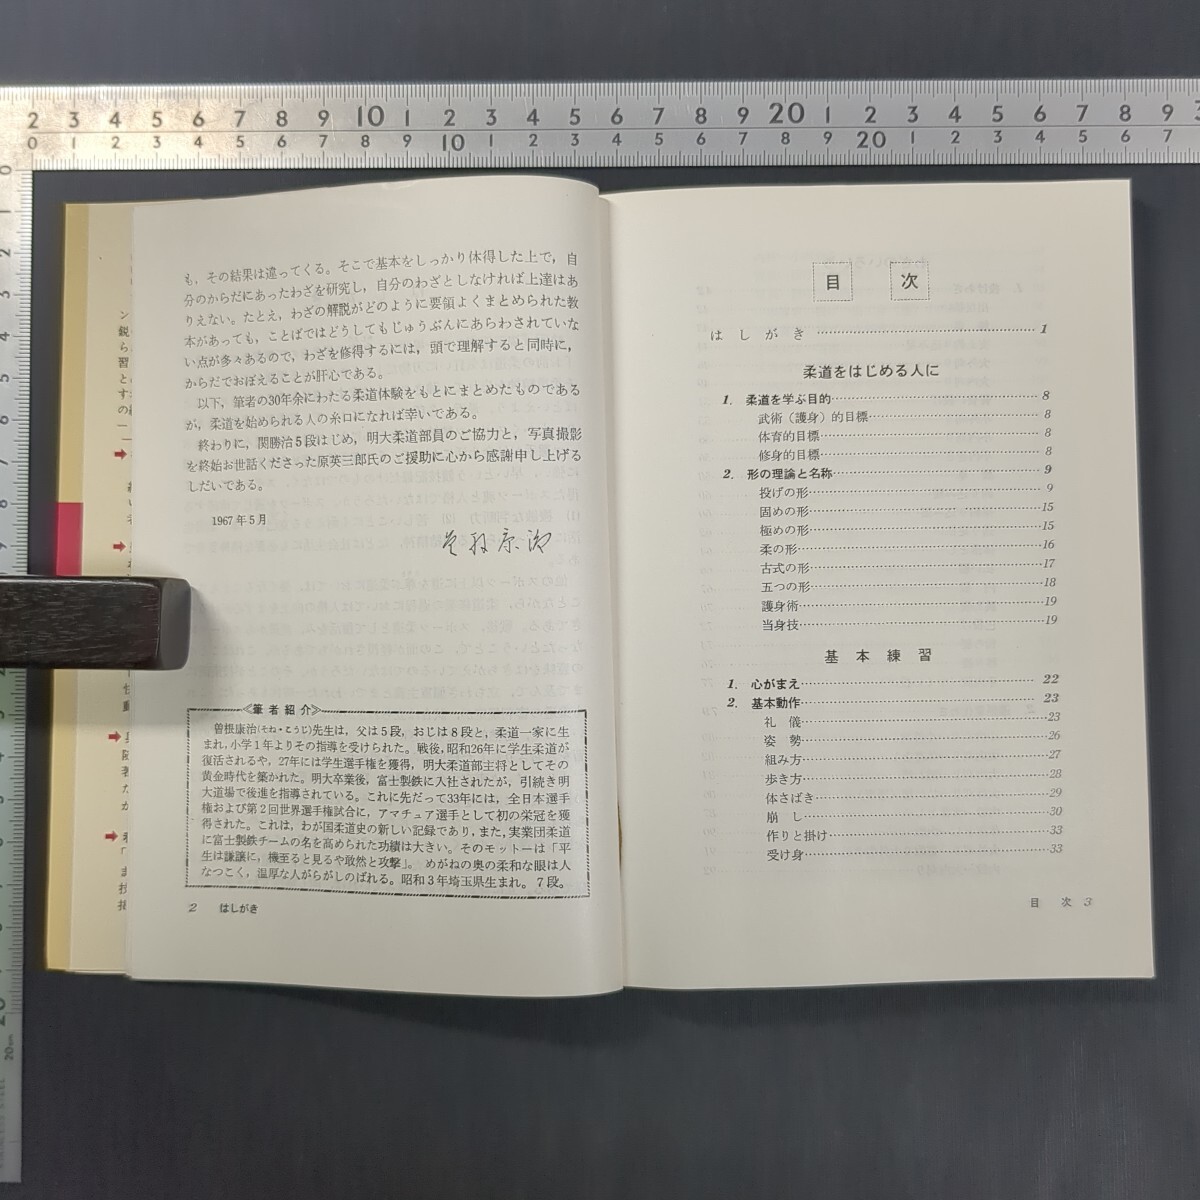 2 3 4 5 6 7 8 9 10 1 2 3 4 5 6 7 8 9 20 1 2 3 4 5 6 7 8 9 3
0 1 2 3 4 5 6 7 8 9 10 1 2 3 4 5 6 7 8 9 20 1 2 3 4 5 6 7
も，その結果は違ってくる。そこで基本をしっかり体得した上で，自
分のからだにあったわざを研究し，自分のわざとしなければ上達はあ
りえない。たとえ，わざの解説がどのように要領よくまとめられた教
本があっても，ことばではどうしてもじゅうぶんにあらわされていな
い点が多々あるので，わざを修得するには，頭で理解すると同時に，
からだでおぼえることが肝心である。
以下，筆者の30年余にわたる柔道体験をもとにまとめたものである
が，柔道を始められる人の糸口になれば幸いである。
終わりに，関勝治5段はじめ，明大柔道部員のご協力と，写真撮影
を終始お世話くださった原英三郎氏のご援助に心から感謝申し上げる
しだいである。
1967年5月
曽根康治
《筆者紹介》
曽根康治(そね・こうじ)先生は，父は5段，おじは8段と，柔道一家に生
まれ，小学1年よりその指導を受けられた。戦後，昭和26年に学生柔道が
復活されるや，27年には学生選手権を獲得，明大柔道部主将としてその
黄金時代を築かれた。明大卒業後，富士製鉄に入社されたが，引続き明
大道場で後進を指導されている。これに先だって33年には，全日本選手
権および第2回世界選手権試合に，アマチュア選手として初の栄冠を獲
得された。これは，わが国柔道史の新しい記録であり，また，実業団柔道
に富士製鉄チームの名を高められた功績は大きい。そのモットーは「平
生は謙譲に，機至ると見るや敢然と攻撃」。めがねの奥の柔和な眼は人
なつこく，温厚な人がらがしのばれる。昭和3年埼玉県生まれ。7段。
2 はしがき
目次
はしがき……1
柔道をはじめる人に
1. 柔道を学ぶ目的……8
武術（護身）的目標……8
体育的目標……8
修身的目標……8
2. 形の理論と名称……9
投げの形……9
固めの形……15
極めの形……15
柔の形……16
古式の形……17
五つの形……18
護身術……19
当身技……19
基本練習
1. 心がまえ……22
2. 基本動作……23
礼儀……23
姿勢……26
組み方……27
歩き方……28
体さばき……29
崩し……30
作りと掛け……33
受け身……33
目次 3